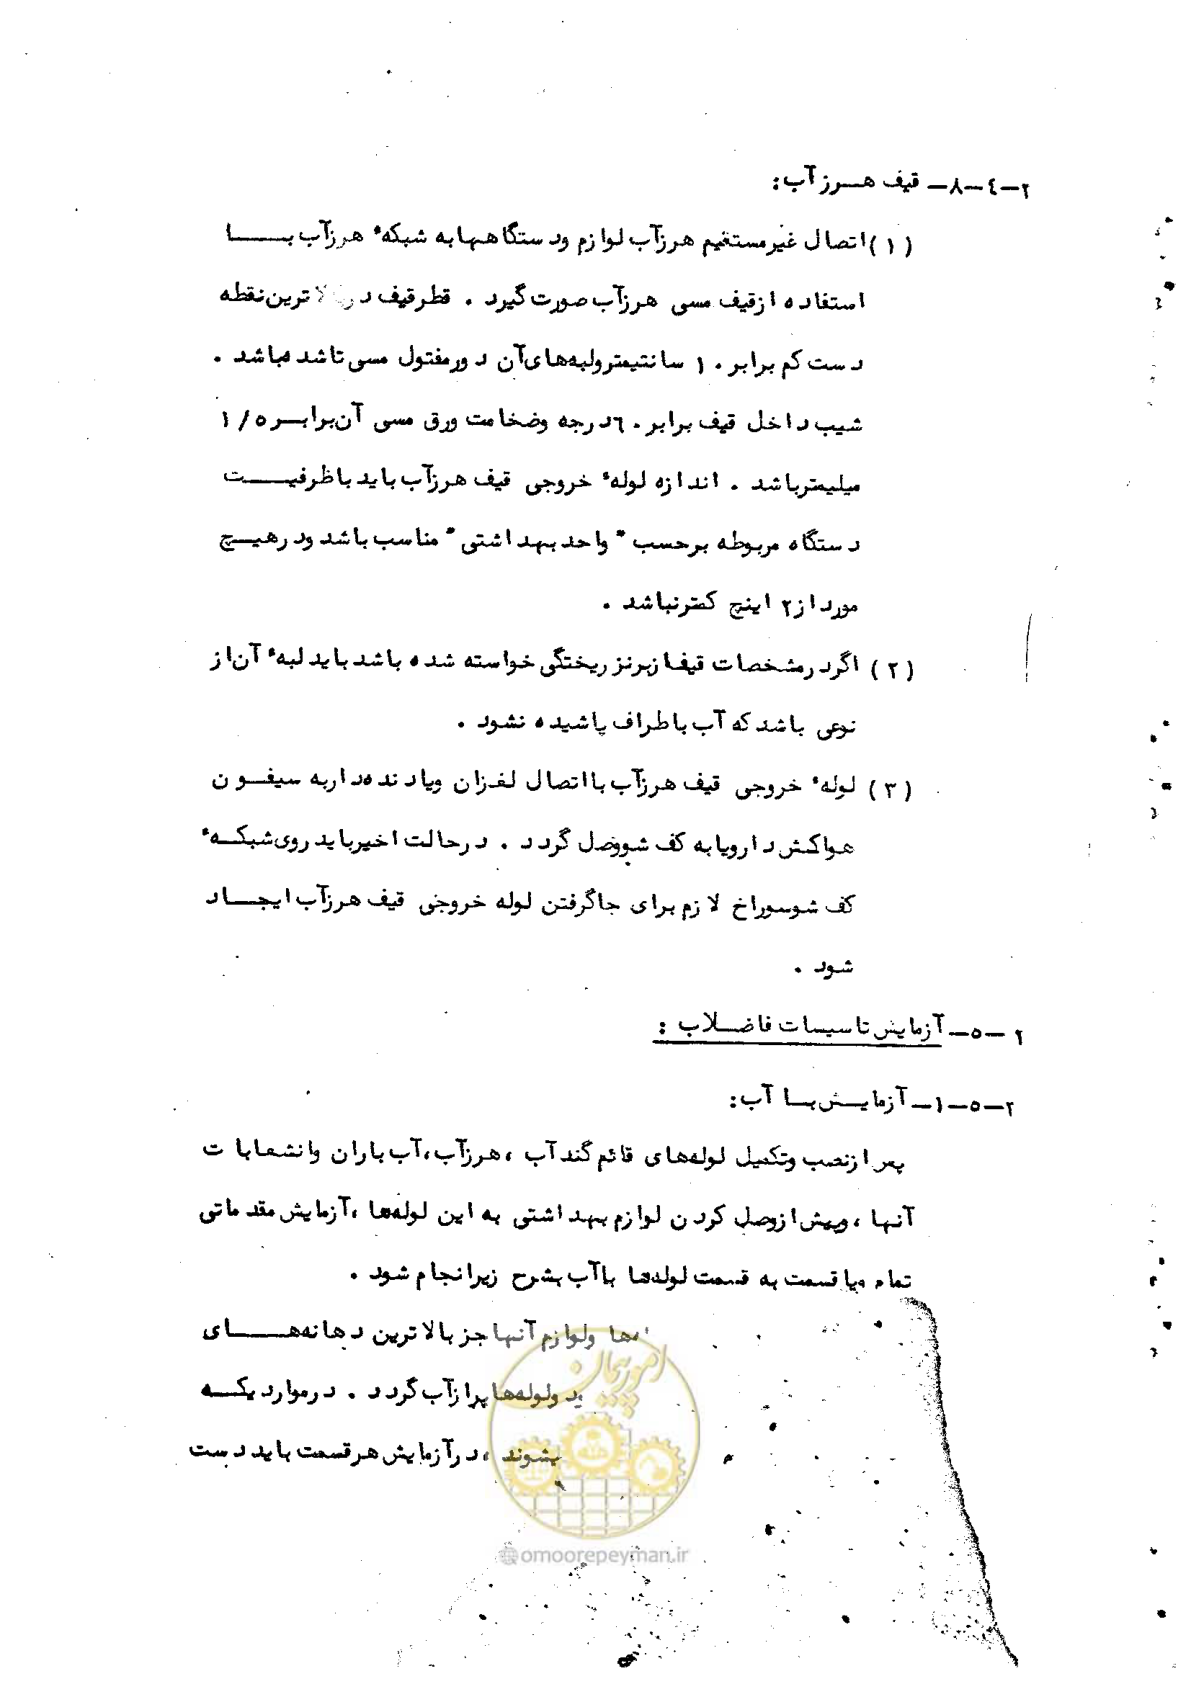 ۲-۴-۸- قیف هرزآب:
(۱) اتصال غیرمستقیم هرزآب لوازم ودستگاهها به شبکهٔ هرزآب بـا
استفاده ازقیف مسی هرزآب صورت گیرد . قطرقیف در لاترین نقطه
دست کم برابر ۱۰ سانتیمترولبه‌های آن دورمفتول مسی تاشده باشد .
شیب داخل قیف برابر ۶۰ درجه وضخامت ورق مسی آن برابر ۱/۵
میلیمترباشد . اندازه لولهٔ خروجی قیف هرزآب باید باظرفیت
دستگاه مربوطه برحسب " واحد بهداشتی " مناسب باشد ودرهیچ
مورد از ۲ اینچ کمترنباشد .
(۲) اگردرمشخصات قیف ازبرنز ریختگی خواسته شده باشد باید لبهٔ آن از
نوعی باشد که آب باطراف پاشیده نشود .
(۳) لولهٔ خروجی قیف هرزآب با اتصال لغزان ویا دنده‌دار به سیفون
هواکش دارویا به کف شووصل گردد . درحالت اخیرباید روی شبکهٔ
کف شوسوراخ لازم برای جاگرفتن لوله خروجی قیف هرزآب ایجاد
شود .
۲-۵- آزمایش تاسیسات فاضلاب :
۲-۵-۱- آزمایش با آب:
پس ازنصب وتکمیل لوله‌های قائم گندآب ، هرزآب، آب باران وانشعابات
آنها ، وپیش ازوصل کردن لوازم بهداشتی به این لوله‌ها ،آزمایش مقدماتی
تمام ویا قسمت به قسمت لوله‌ها باآب بشرح زیرانجام شود .
ولوازم آنها جز بالاترین دهانه‌های
ولوله‌ها پرازآب گردد . درمواردیکه
بشوند ، درآزمایش هرقسمت باید دست
امور پیمان
@omoorepeyman.ir